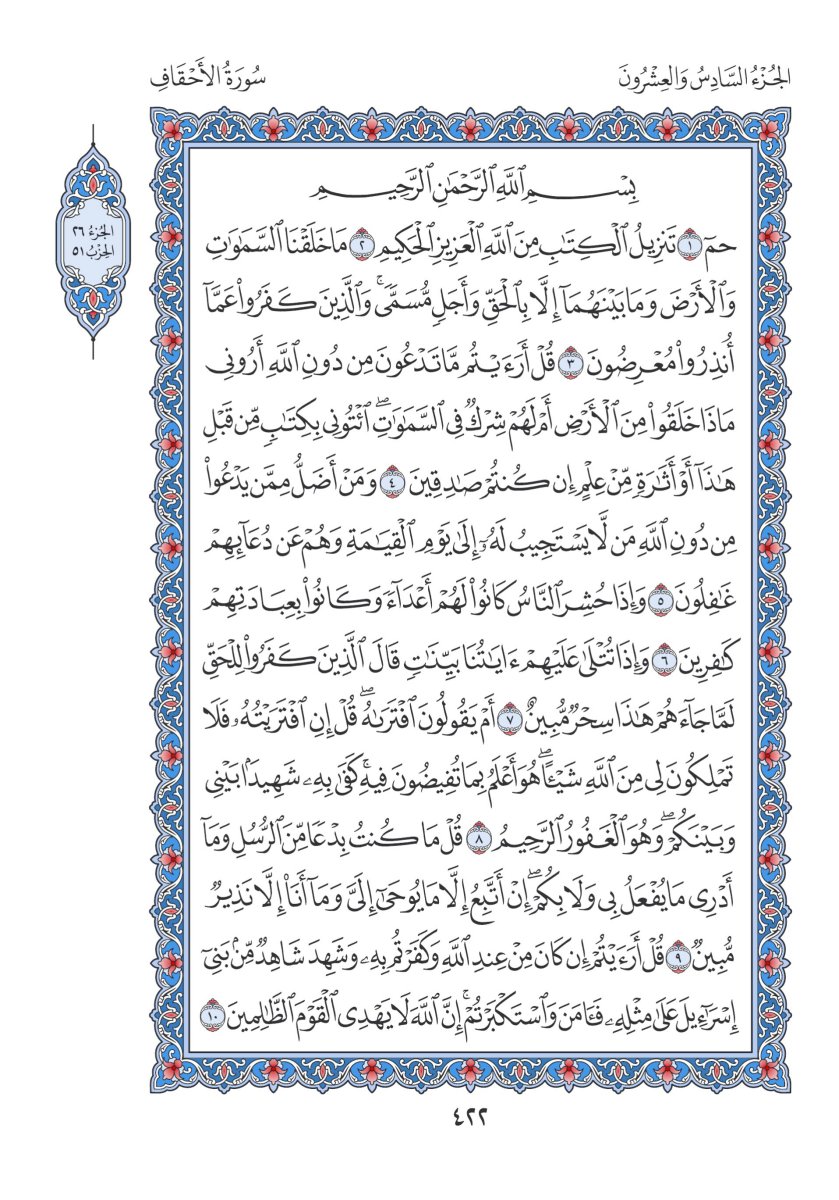 الجُزْءُ السَّادِسُ وَالعِشْرُونَ
سُورَةُ الأَحْقَافِ
الجُزءُ ٢٦
الحِزْبُ ٥١
بِسْمِ ٱللَّهِ ٱلرَّحْمَٰنِ ٱلرَّحِيمِ
حمٓ ١ تَنزِيلُ ٱلْكِتَٰبِ مِنَ ٱللَّهِ ٱلْعَزِيزِ ٱلْحَكِيمِ ٢ مَا خَلَقْنَا ٱلسَّمَٰوَٰتِ
وَٱلْأَرْضَ وَمَا بَيْنَهُمَآ إِلَّا بِٱلْحَقِّ وَأَجَلٍ مُّسَمًّىۚ وَٱلَّذِينَ كَفَرُوا۟ عَمَّآ
أُنذِرُوا۟ مُعْرِضُونَ ٣ قُلْ أَرَءَيْتُم مَّا تَدْعُونَ مِن دُونِ ٱللَّهِ أَرُونِى
مَاذَا خَلَقُوا۟ مِنَ ٱلْأَرْضِ أَمْ لَهُمْ شِرْكٌ فِى ٱلسَّمَٰوَٰتِۖ ٱئْتُونِى بِكِتَٰبٍ مِّن قَبْلِ
هَٰذَآ أَوْ أَثَٰرَةٍ مِّنْ عِلْمٍ إِن كُنتُمْ صَٰدِقِينَ ٤ وَمَنْ أَضَلُّ مِمَّن يَدْعُوا۟
مِن دُونِ ٱللَّهِ مَن لَّا يَسْتَجِيبُ لَهُۥٓ إِلَىٰ يَوْمِ ٱلْقِيَٰمَةِ وَهُمْ عَن دُعَآئِهِمْ
غَٰفِلُونَ ٥ وَإِذَا حُشِرَ ٱلنَّاسُ كَانُوا۟ لَهُمْ أَعْدَآءً وَكَانُوا۟ بِعِبَادَتِهِمْ
كَٰفِرِينَ ٦ وَإِذَا تُتْلَىٰ عَلَيْهِمْ ءَايَٰتُنَا بَيِّنَٰتٍ قَالَ ٱلَّذِينَ كَفَرُوا۟ لِلْحَقِّ
لَمَّا جَآءَهُمْ هَٰذَا سِحْرٌ مُّبِينٌ ٧ أَمْ يَقُولُونَ ٱفْتَرَىٰهُۖ قُلْ إِنِ ٱفْتَرَيْتُهُۥ فَلَا
تَمْلِكُونَ لِى مِنَ ٱللَّهِ شَيْـًٔاۖ هُوَ أَعْلَمُ بِمَا تُفِيضُونَ فِيهِۚ كَفَىٰ بِهِۦ شَهِيدًۢا بَيْنِى
وَبَيْنَكُمْۖ وَهُوَ ٱلْغَفُورُ ٱلرَّحِيمُ ٨ قُلْ مَا كُنتُ بِدْعًا مِّنَ ٱلرُّسُلِ وَمَآ
أَدْرِى مَا يُفْعَلُ بِى وَلَا بِكُمْۖ إِنْ أَتَّبِعُ إِلَّا مَا يُوحَىٰٓ إِلَىَّ وَمَآ أَنَا۠ إِلَّا نَذِيرٌ
مُّبِينٌ ٩ قُلْ أَرَءَيْتُمْ إِن كَانَ مِنْ عِندِ ٱللَّهِ وَكَفَرْتُم بِهِۦ وَشَهِدَ شَاهِدٌ مِّنۢ بَنِىٓ
إِسْرَٰٓءِيلَ عَلَىٰ مِثْلِهِۦ فَـَٔامَنَ وَٱسْتَكْبَرْتُمْۚ إِنَّ ٱللَّهَ لَا يَهْدِى ٱلْقَوْمَ ٱلظَّٰلِمِينَ ١٠
٤٢٢